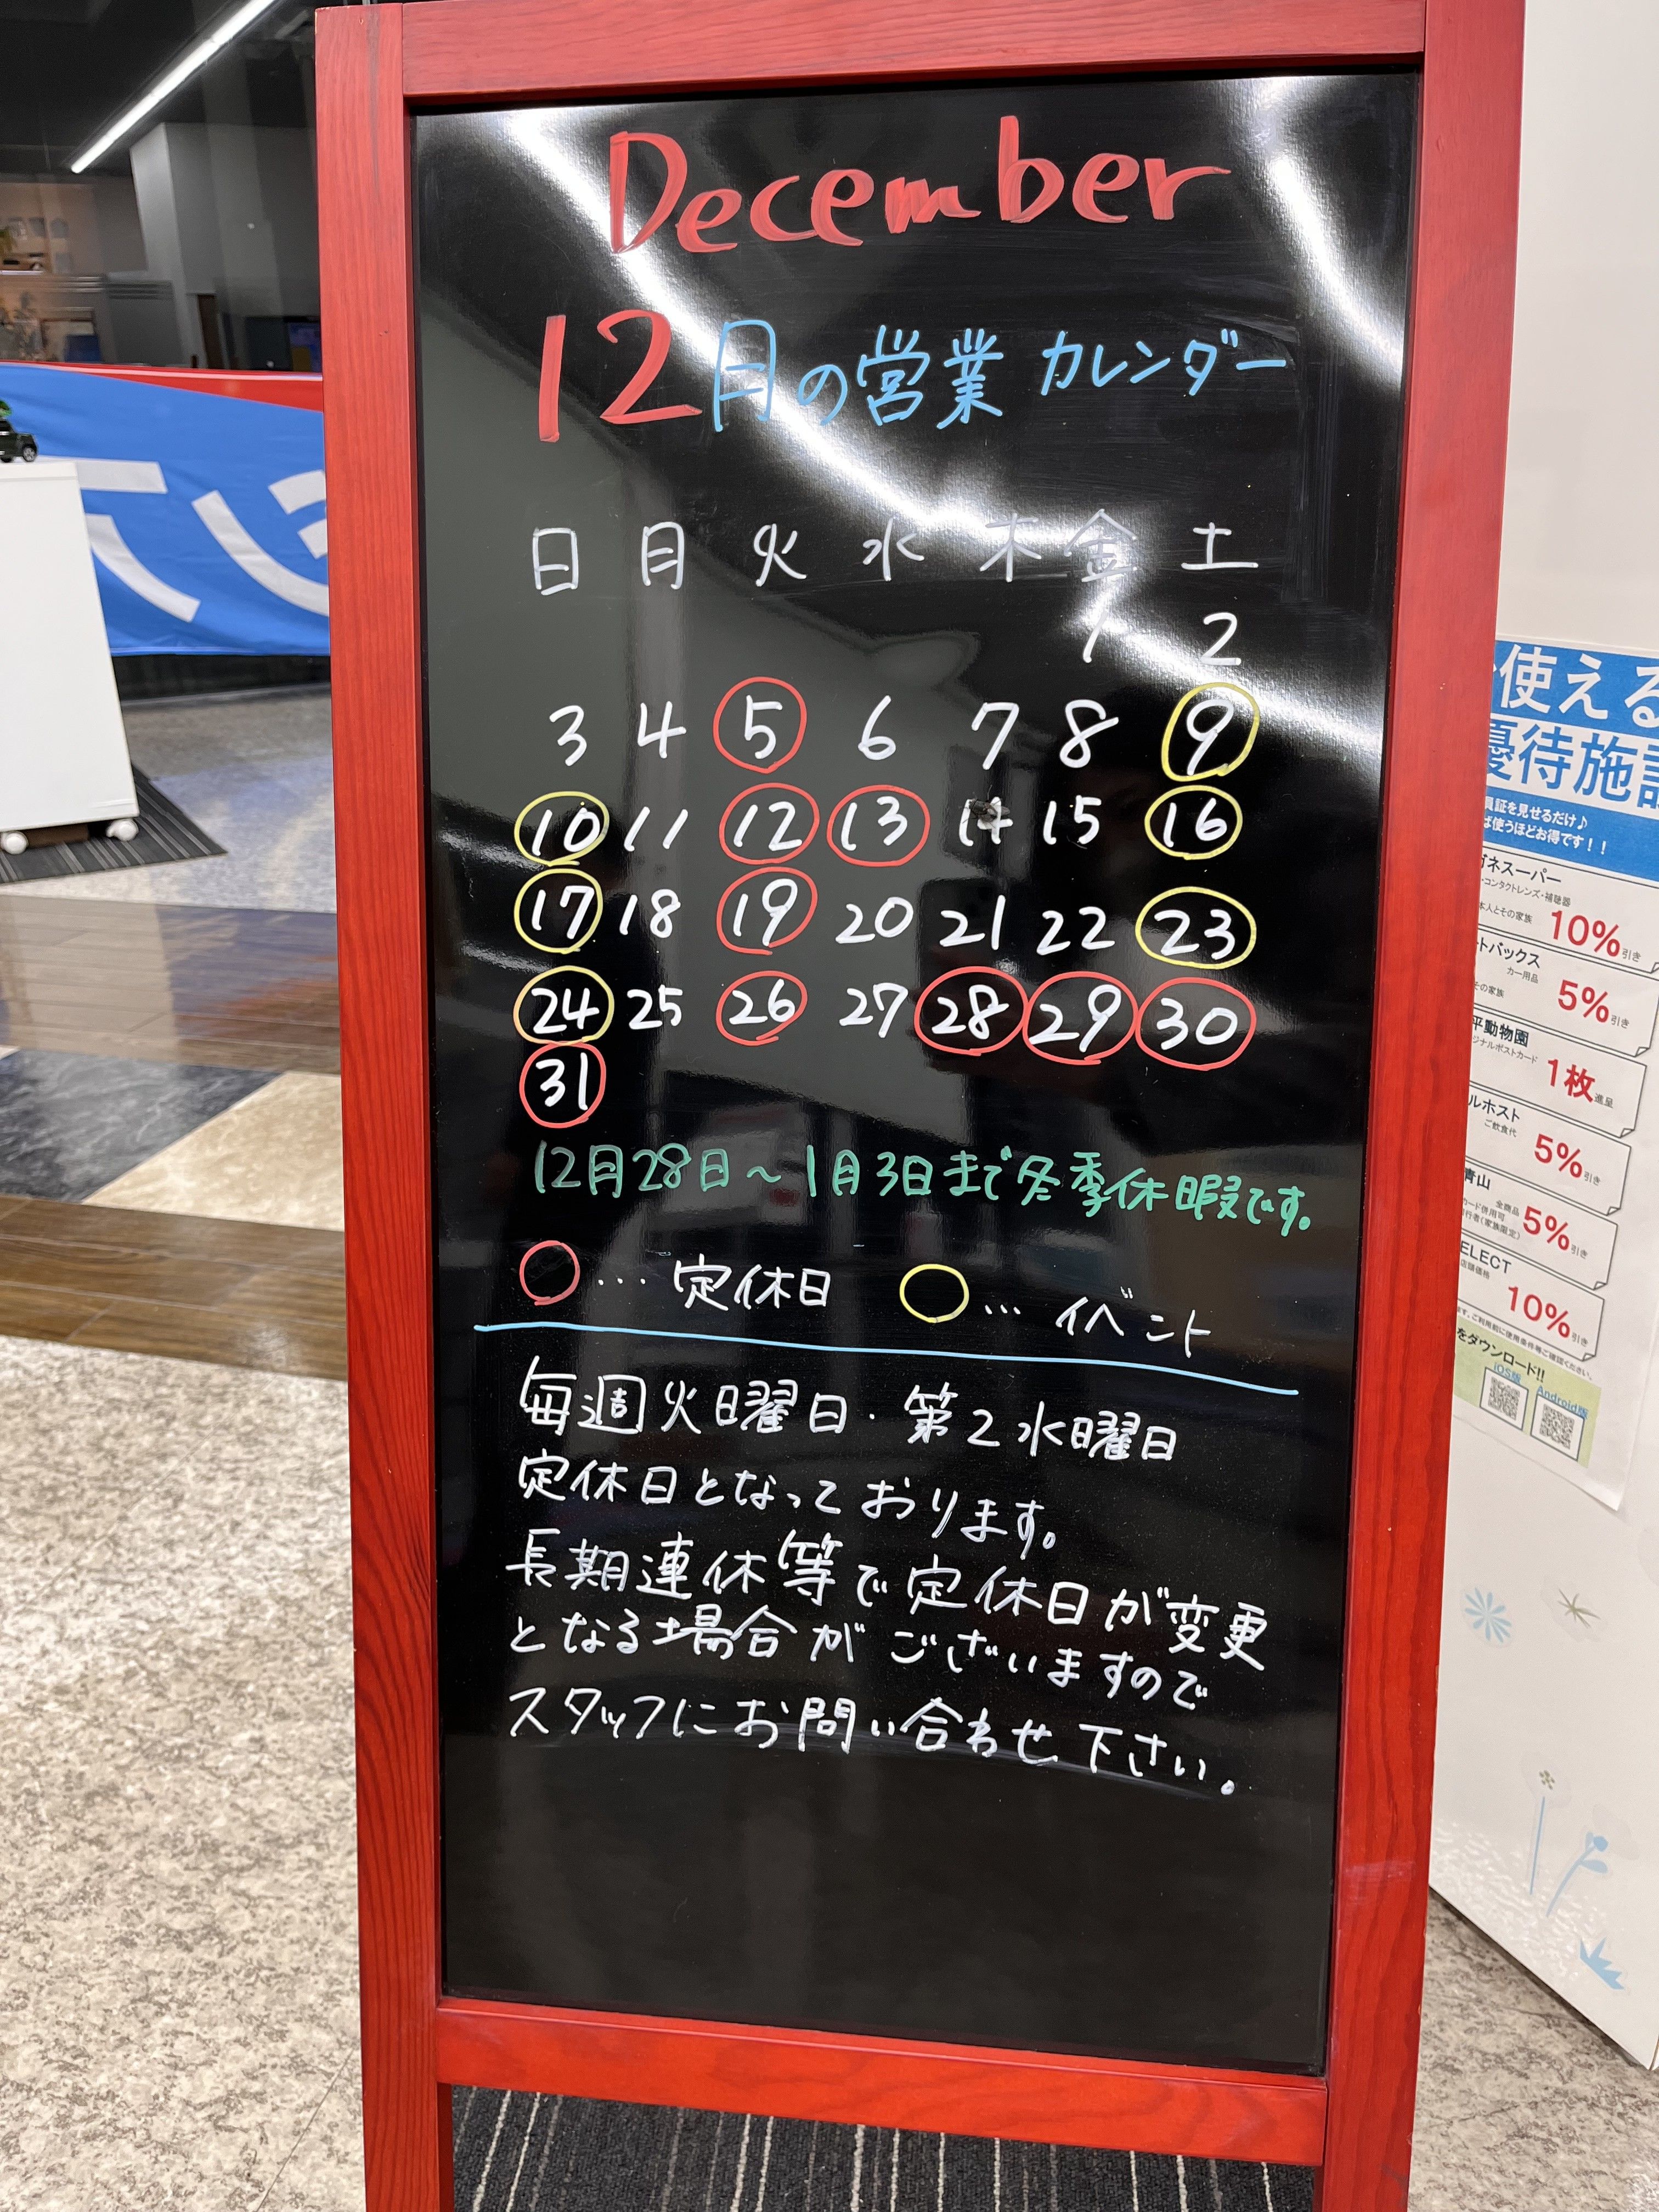 December
12月の営業カレンダー
日 月 火 水 木 金 土
1 2
3 4 5 6 7 8 9
10 11 12 13 14 15 16
17 18 19 20 21 22 23
24 25 26 27 28 29 30
31
12月28日～1月3日まで冬季休暇です。
○… 定休日 ○… イベント
毎週火曜日・第2水曜日
定休日となっております。
長期連休等で定休日が変更
となる場合がございますので
スタッフにお問い合わせ下さい。
使える
優待施設
員証を見せるだけ♪
ば使うほどお得です！！
ガネスーパー
コンタクトレンズ・補聴器
本人とその家族 10%引き
トバックス
カー用品
その家族 5%引き
平動物園
ジナルポストカード
1枚進呈
ルホスト
ご飲食代
5%引き
青山
全商品
カード併用可
行者(家族限定) 5%引き
ELECT
店頭価格
10%引き
をダウンロード!!
iOS版
Android版